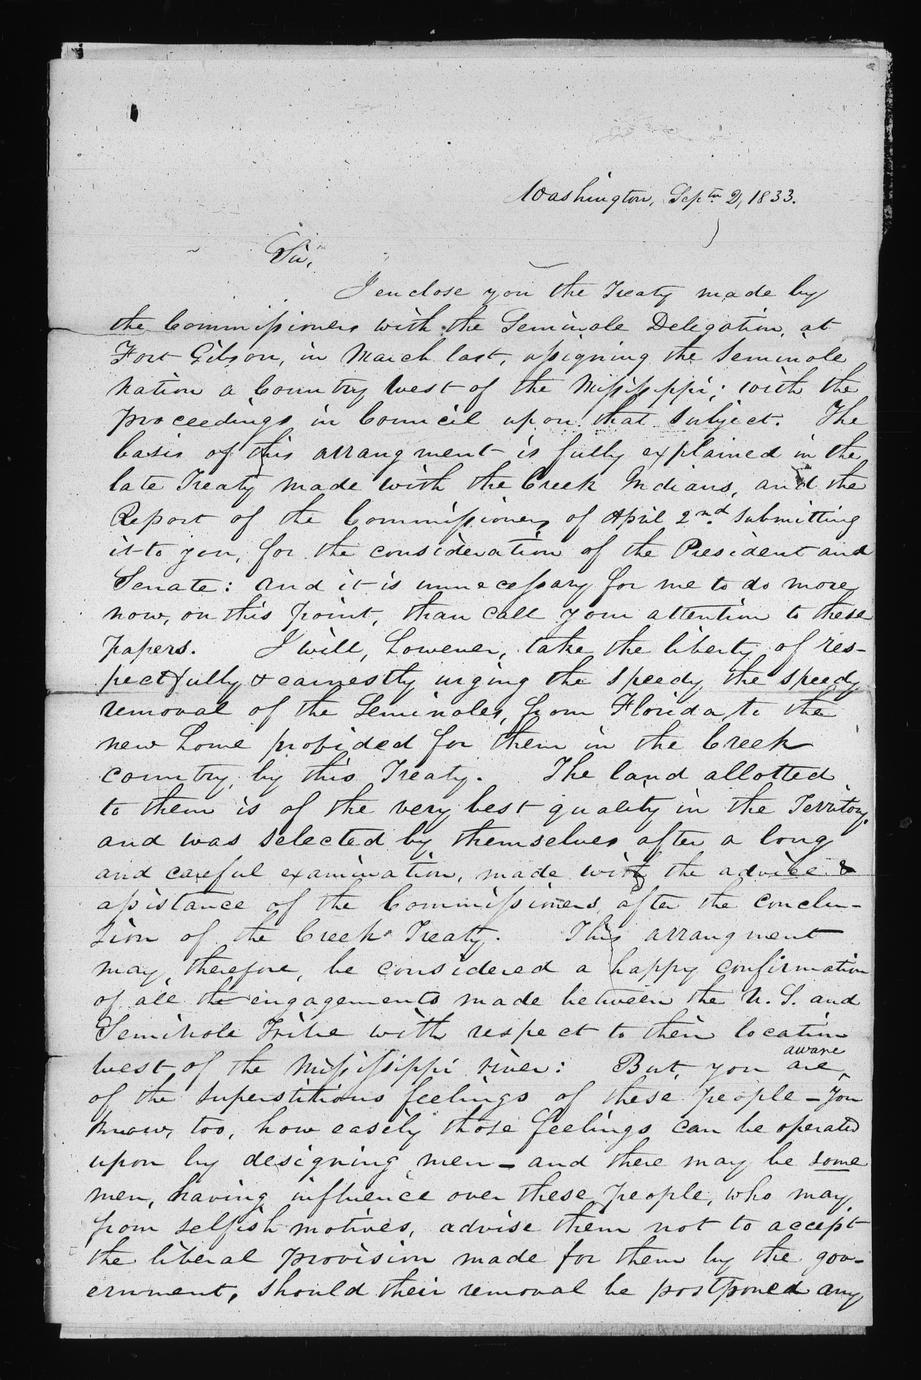 Washington, Septr 2, 1833.
Sir,
I enclose you the Treaty made by
the Commissioners with the Seminole Delegation, at
Fort Gibson, in March last, assigning the Seminole
Nation a Country West of the Mississippi; with the
proceedings in Council upon that subject. The
basis of this arrangment is fully explained in the
late Treaty made with the Creek Indians, and the
Report of the Commissioners of April 2nd submitting
it to you, for the consideration of the President and
Senate: and it is unnecessary for me to do more
now, on this point, than call your attention to these
papers. I will, however, take the liberty of res-
pectfully & earnestly urging the speedy the speedy
removal of the Seminoles, from Florida, to the
new home provided for them in the Creek
country, by this Treaty. The land allotted
to them is of the very best quality in the Territory,
and was selected by themselves after a long
and careful examination, made with the advice &
assistance of the Commissioners, after the conclu-
sion of the Creek Treaty. This arrangment
may, therefore, be considered a happy confirmation
of all the engagements made between the U. S. and
Seminole Tribe with respect to their location
west of the Mississippi river: But, you are aware,
of the superstitious feelings of these people – You
know, too, how easily those feelings can be operated
upon by designing men – and there may be some
men, having influence over these people, who may,
from selfish motives, advise them not to accept
the liberal provision made for them by the gov-
ernment, should their removal be postponed any